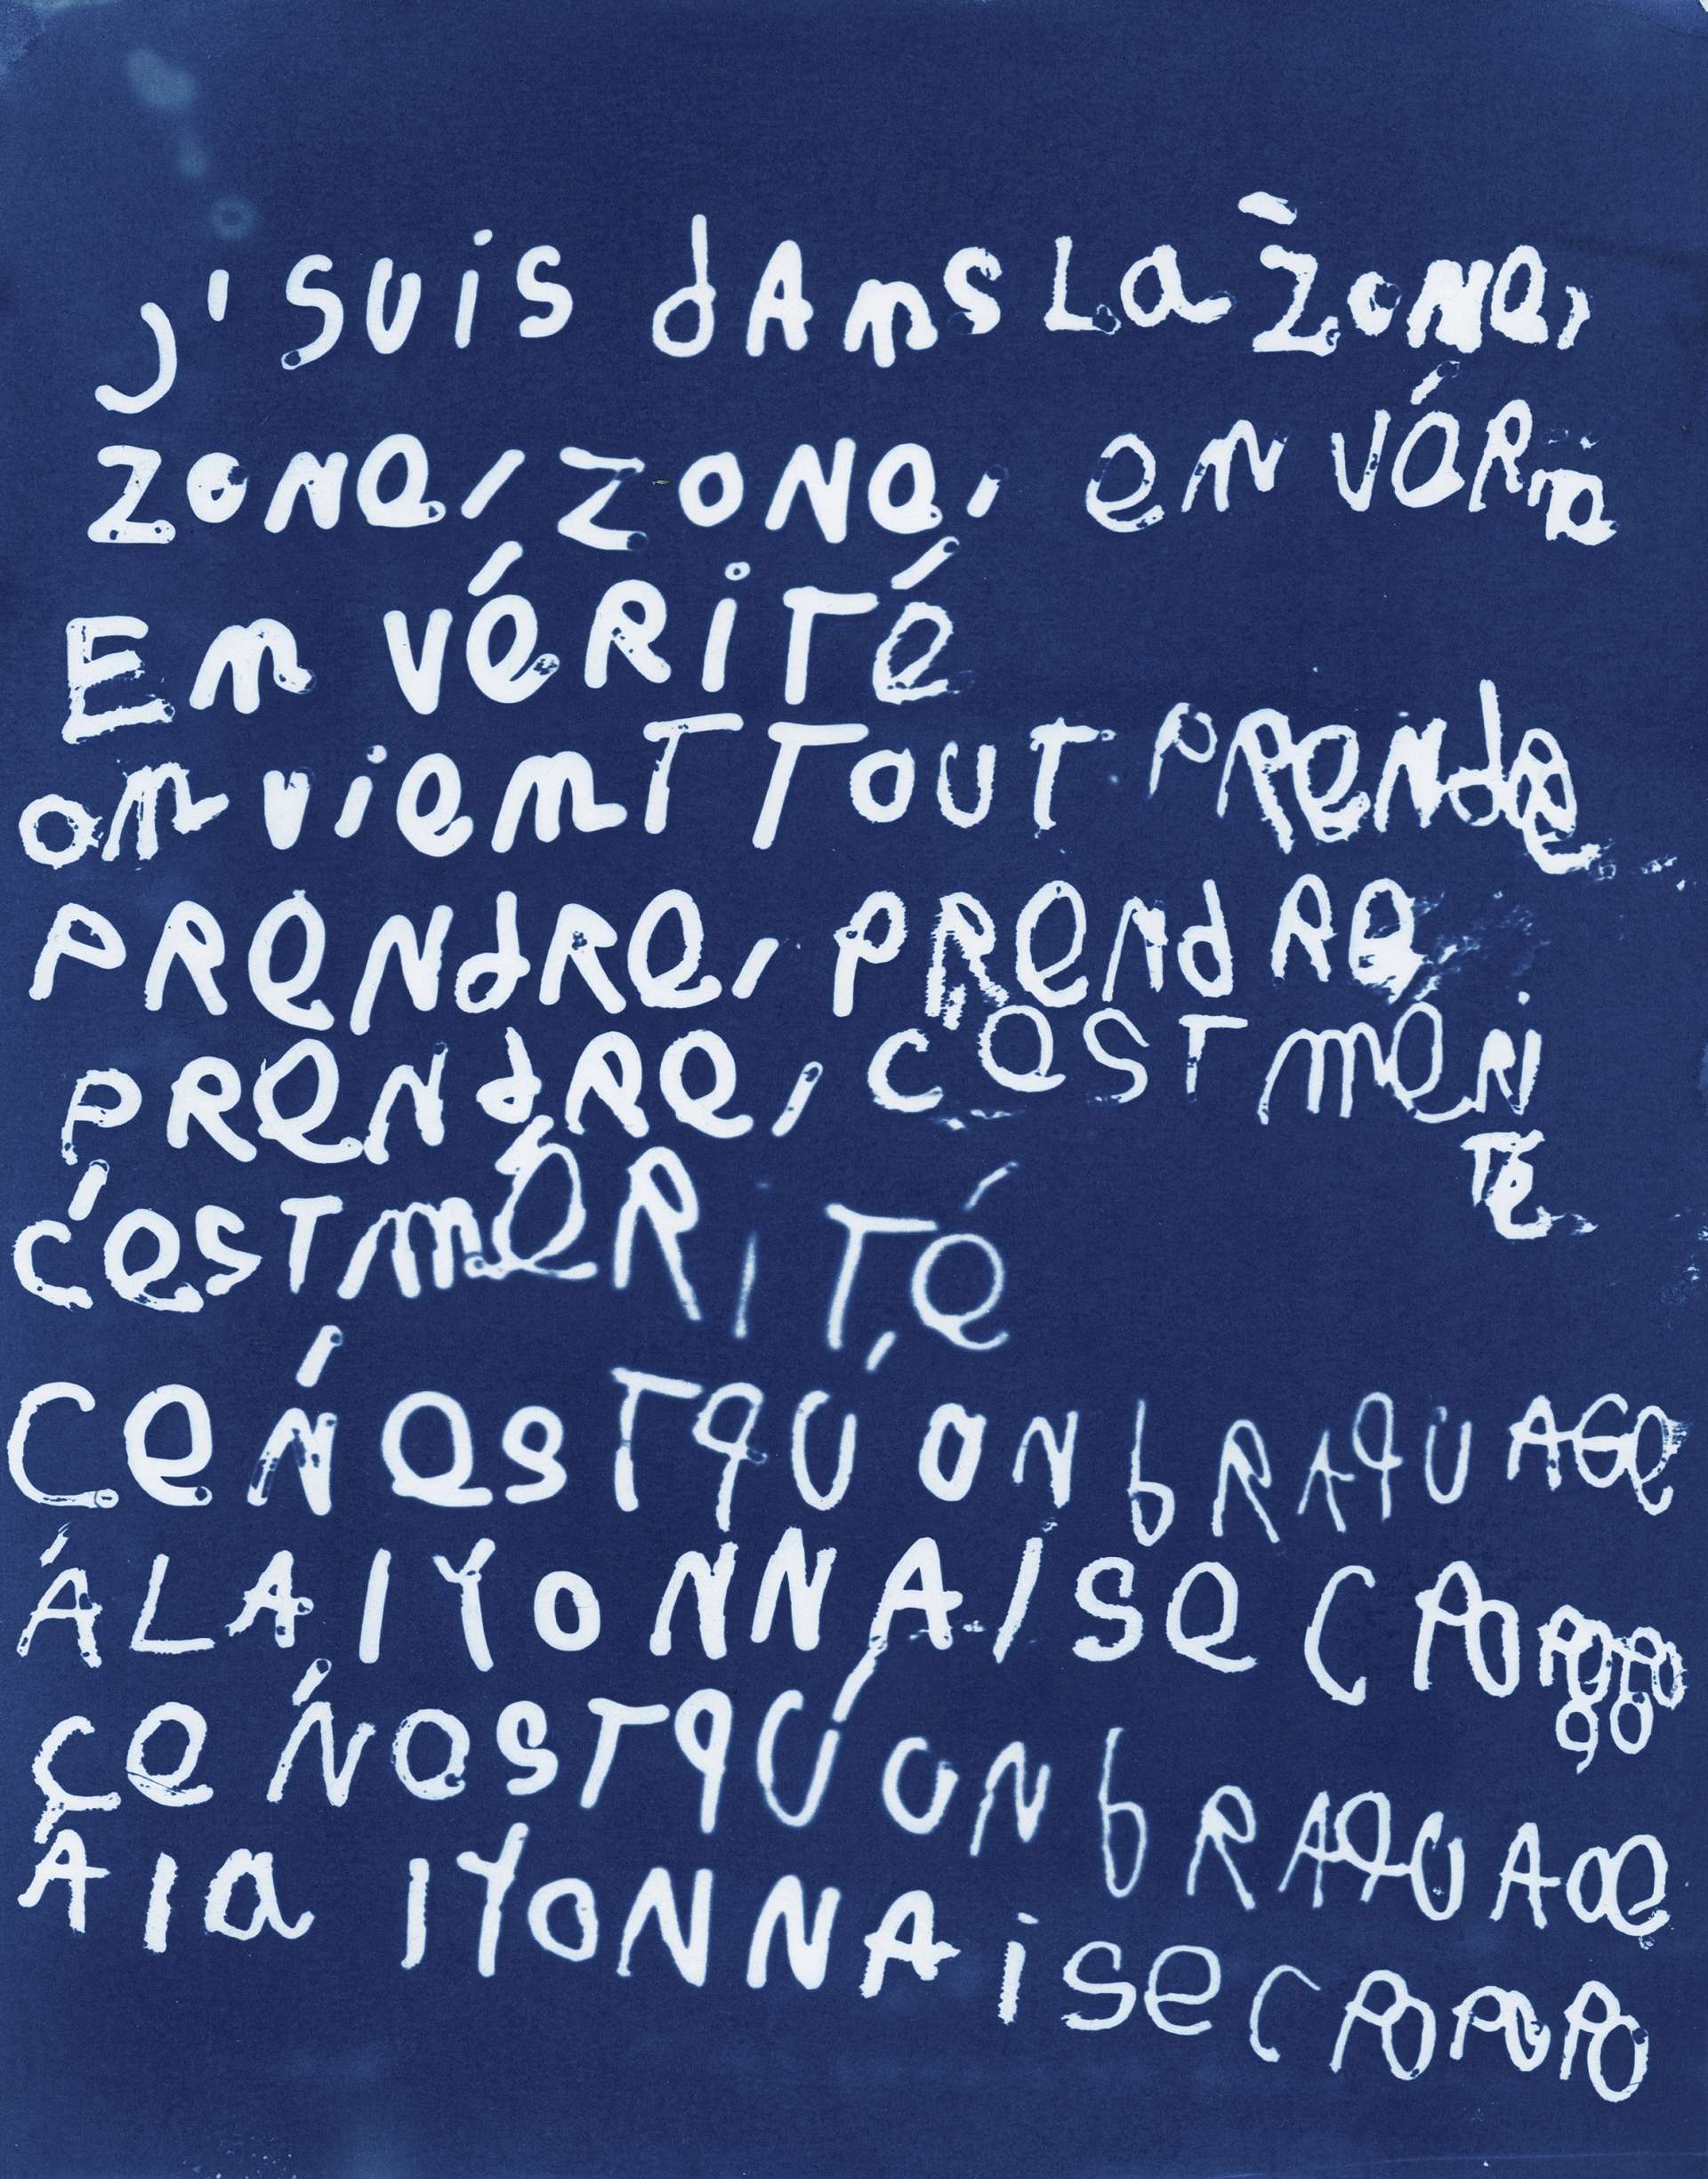 J'SUiS dANS LA ZONe,
ZONe, ZONe, eN VéRité
EN VéRiTé
ON vieNT TOUT PReNde
PReNdRe, PReNdRe
PReNdRe, C'eST méRi
Té
C'eST méRiTé
Ce N'eST QU'ON bRAQUAGe
À LA lYONNAISe (POPOPOPO
PO
Ce N'eST QU'ON bRAQUAGe
À la lYONNAiSe (POPOPOPO